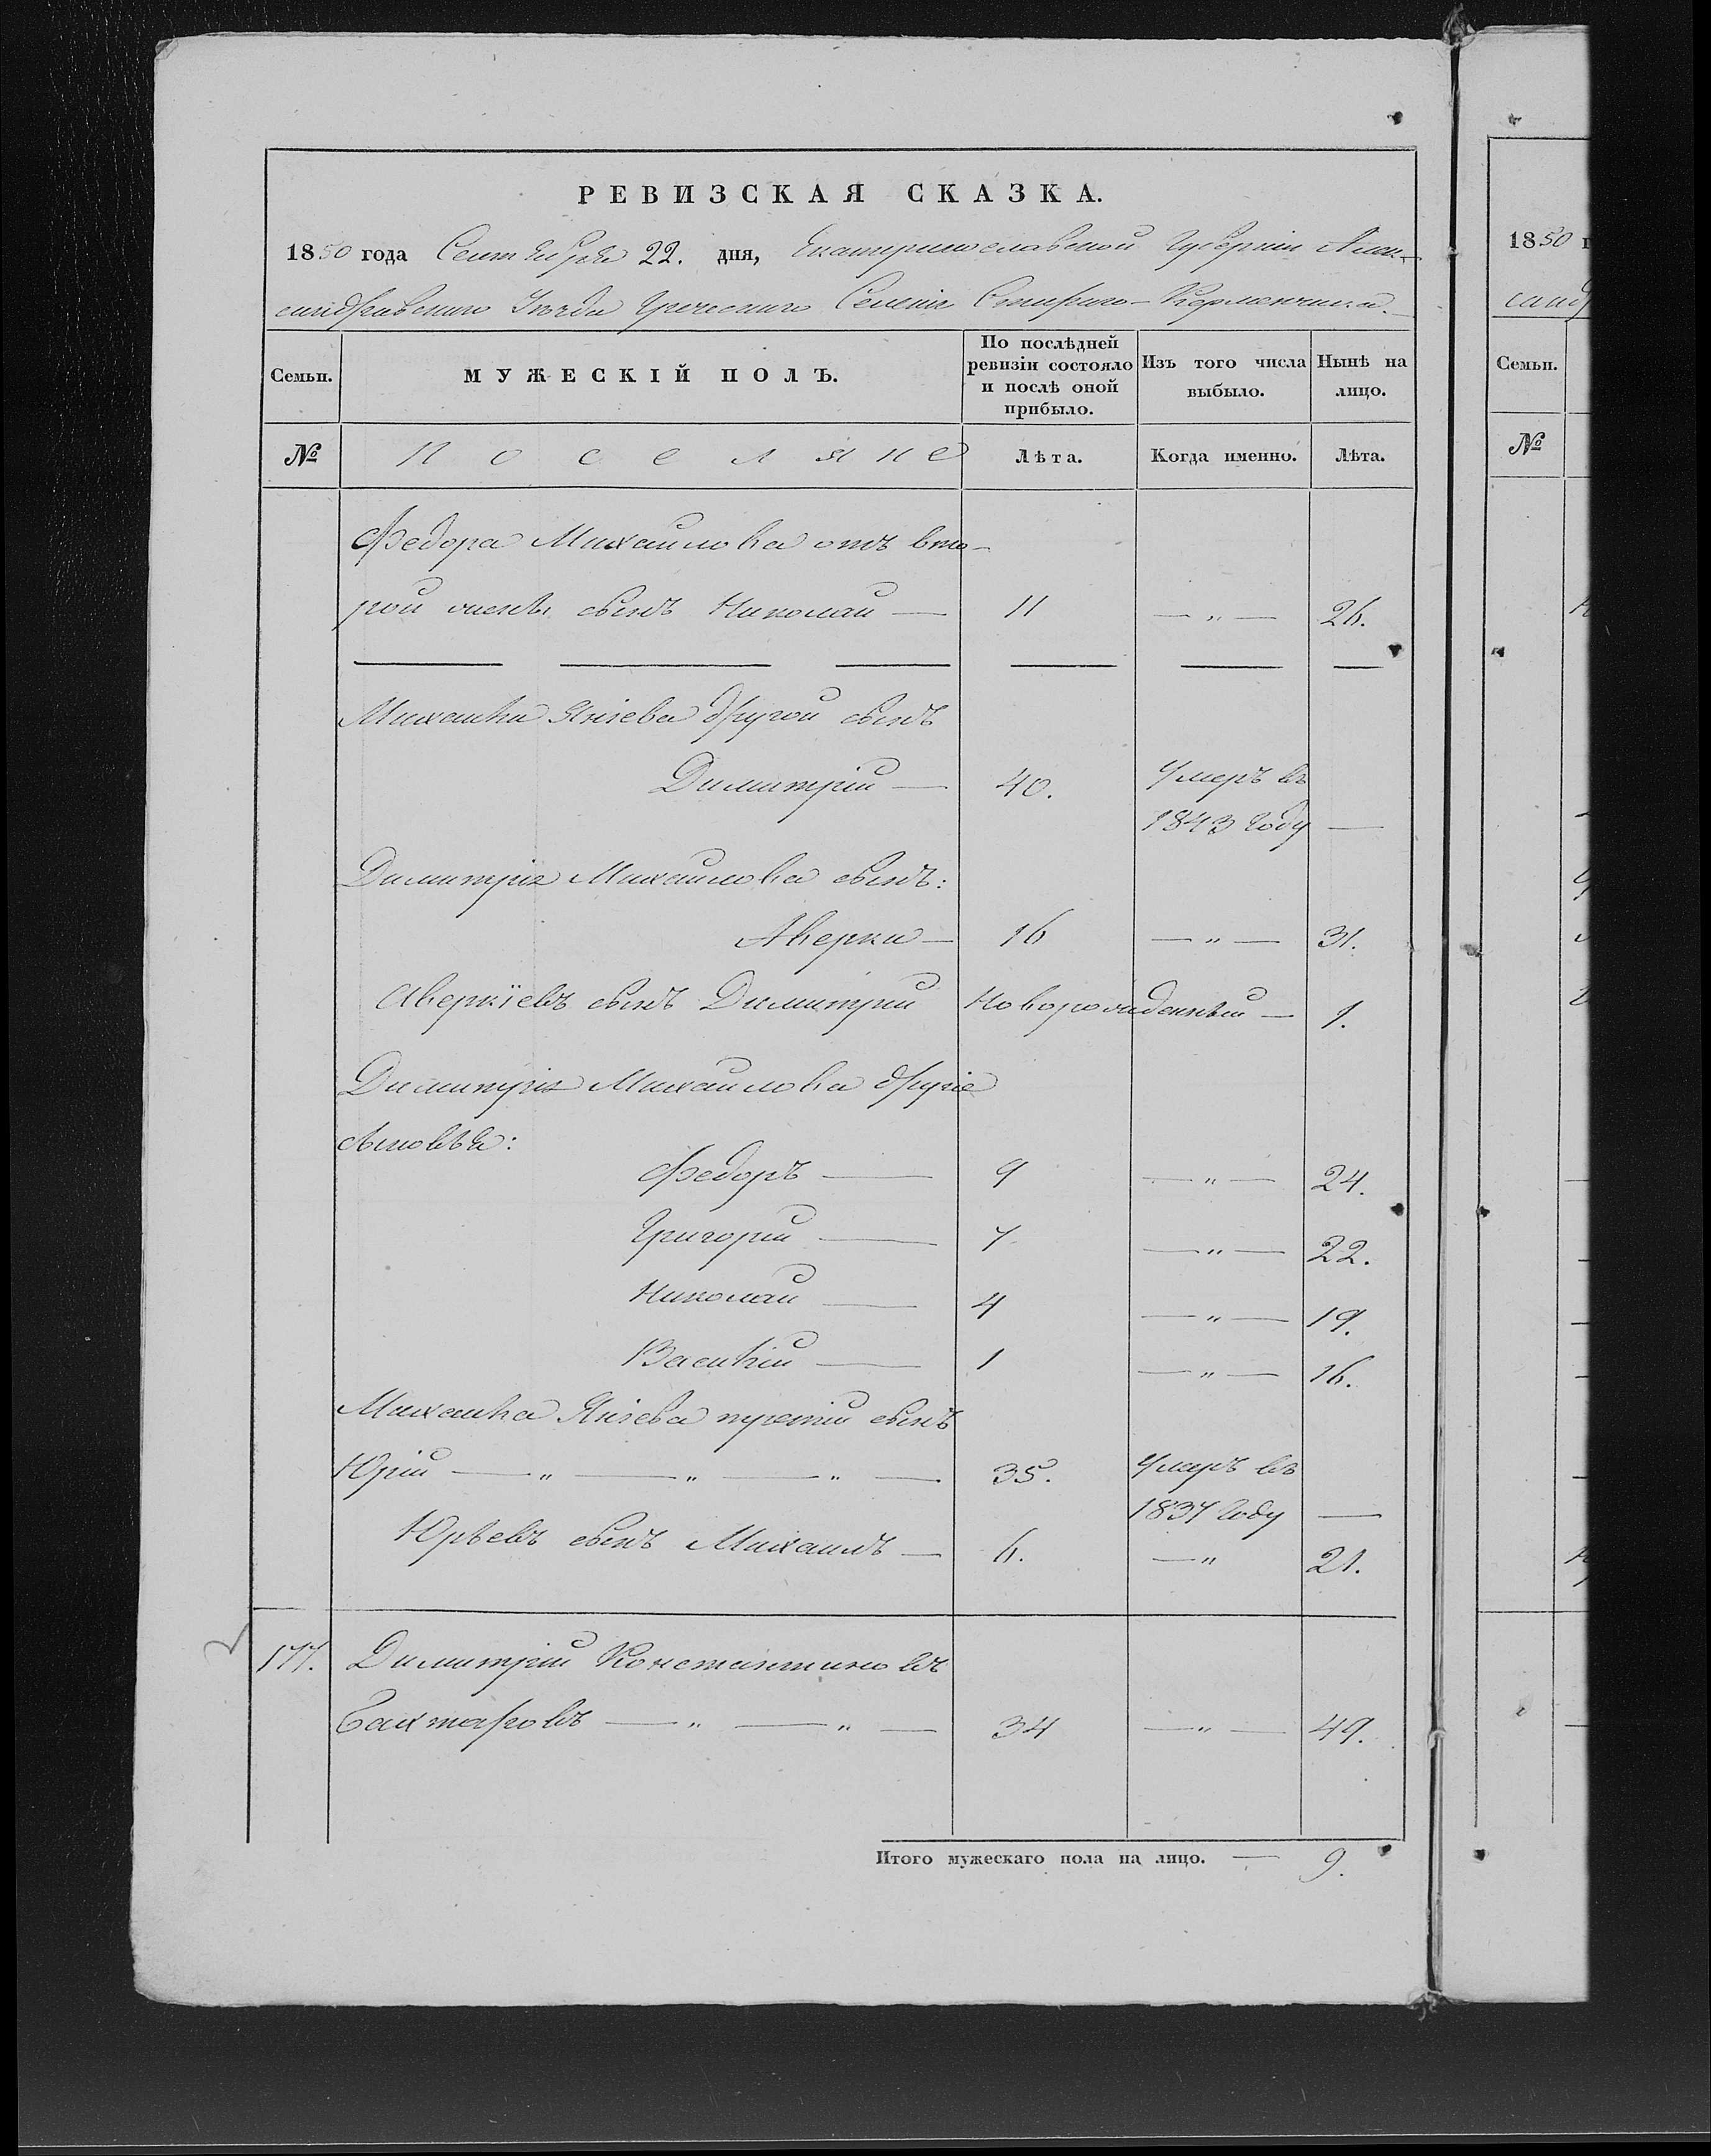 РЕВИЗСКАЯ СКАЗКА.
1850 года Сентября 22. дня, Екатеринославской Губернiи Алек-
сандровскаго Уѣзда Греческаго Селенiя Стараго-Керменчика.
Семьи. МУЖЕСКIЙ ПОЛЪ. По послѣдней ревизiи состояло и послѣ оной прибыло. Изъ того числа выбыло. Нынѣ на лицо.
№ Поселяне Лѣта. Когда именно. Лѣта.
Федора Михайлова отъ вто-
рой жены сынъ Николай — 11 — „ — 26.
Михайла Янiева другой сынъ
Димитрiй — 40. Умеръ въ
1843 году —
Димитрiя Михайлова сынъ:
Аверки — 16 — „ — 31.
Аверкiевъ сынъ Димитрiй Новорожденный — 1.
Димитрiя Михайлова другiе
сыновья:
Федоръ — 9 — „ — 24.
Григорiй — 7 — „ — 22.
Николай — 4 — „ — 19.
Василiй — 1 — „ — 16.
Михайла Янiева третiй сынъ
Юрiй — „ — „ — „ — 35. Умеръ въ
1837 году —
Юрьевъ сынъ Михаилъ — 6. — „ 21.
177. Димитрiй Константиновъ
Бахтаровъ — „ — „ — 34 — „ — 49.
Итого мужескаго пола на лицо. — 9.
1850 г
санд
Семьи.
№